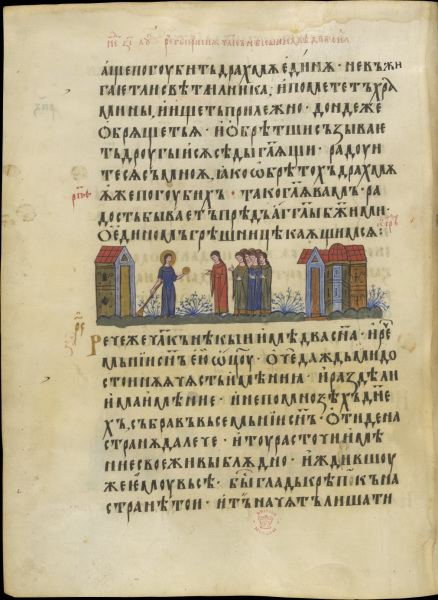 аще погоубитъ драхмѫ единѫ · не въжи
гаетли свѣтилника, и помететъ хра
мины, и ищетъ прилежно · дондеже
обрѧщетъѧ · и обрѣтши съзывае
тъ дроугы и сѫсѣды глѧщи · радоуи
тесѧ съ мноѧ, ꙗко ѡбрѣтохъ драхмѫ
ѫже погоубихъ · тако глѧ вамъ · ра
дость бываетъ прѣдъ аг҃глы бж҃иими ·
о единомъ грѣшницѣ каѫщимсѧ :
Рече же ч҃лкъ нѣкыи имѣ два сн҃а · и ре
мьнии сн҃ъ ею ѡц҃оу · ѡч҃е даждь ми до
стоинѫѧ чѧсть имѣниꙗ · и раздѣли
има имѣние · и не по мнозѣхъ дн҃е
хъ, събравъ вьсе мьнии сн҃ъ · отиде на
странѫ далече · и тоу расточи имѣ
ние свое живы блѫдно · иждившоу
же емоу вьсѣ · бы гладь крѣпокъ на
странѣ тои · и тъ начѧтъ лишати